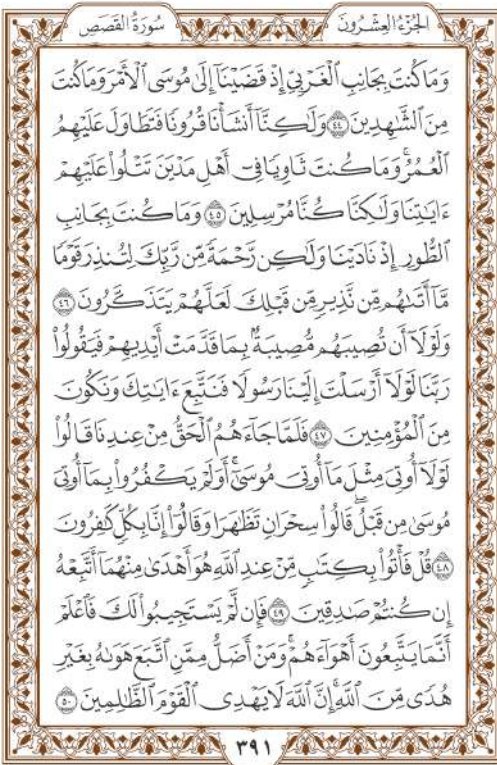 الجُزْءُ العِشْرُونَ سُورَةُ القَصَصِ
وَمَا كُنتَ بِجَانِبِ ٱلْغَرْبِيِّ إِذْ قَضَيْنَآ إِلَىٰ مُوسَى ٱلْأَمْرَ وَمَا كُنتَ
مِنَ ٱلشَّٰهِدِينَ ٤٤ وَلَٰكِنَّآ أَنشَأْنَا قُرُونًا فَتَطَاوَلَ عَلَيْهِمُ
ٱلْعُمُرُ ۚ وَمَا كُنتَ ثَاوِيًا فِىٓ أَهْلِ مَدْيَنَ تَتْلُوا۟ عَلَيْهِمْ
ءَايَٰتِنَا وَلَٰكِنَّا كُنَّا مُرْسِلِينَ ٤٥ وَمَا كُنتَ بِجَانِبِ
ٱلطُّورِ إِذْ نَادَيْنَا وَلَٰكِن رَّحْمَةً مِّن رَّبِّكَ لِتُنذِرَ قَوْمًا
مَّآ أَتَىٰهُم مِّن نَّذِيرٍ مِّن قَبْلِكَ لَعَلَّهُمْ يَتَذَكَّرُونَ ٤٦
وَلَوْلَآ أَن تُصِيبَهُم مُّصِيبَةٌۢ بِمَا قَدَّمَتْ أَيْدِيهِمْ فَيَقُولُوا۟
رَبَّنَا لَوْلَآ أَرْسَلْتَ إِلَيْنَا رَسُولًا فَنَتَّبِعَ ءَايَٰتِكَ وَنَكُونَ
مِنَ ٱلْمُؤْمِنِينَ ٤٧ فَلَمَّا جَآءَهُمُ ٱلْحَقُّ مِنْ عِندِنَا قَالُوا۟
لَوْلَآ أُوتِىَ مِثْلَ مَآ أُوتِىَ مُوسَىٰٓ ۚ أَوَلَمْ يَكْفُرُوا۟ بِمَآ أُوتِىَ
مُوسَىٰ مِن قَبْلُ ۖ قَالُوا۟ سِحْرَانِ تَظَٰهَرَا وَقَالُوٓا۟ إِنَّا بِكُلٍّ كَٰفِرُونَ
٤٨ قُلْ فَأْتُوا۟ بِكِتَٰبٍ مِّنْ عِندِ ٱللَّهِ هُوَ أَهْدَىٰ مِنْهُمَآ أَتَّبِعْهُ
إِن كُنتُمْ صَٰدِقِينَ ٤٩ فَإِن لَّمْ يَسْتَجِيبُوا۟ لَكَ فَٱعْلَمْ
أَنَّمَا يَتَّبِعُونَ أَهْوَآءَهُمْ ۚ وَمَنْ أَضَلُّ مِمَّنِ ٱتَّبَعَ هَوَىٰهُ بِغَيْرِ
هُدًى مِّنَ ٱللَّهِ ۚ إِنَّ ٱللَّهَ لَا يَهْدِى ٱلْقَوْمَ ٱلظَّٰلِمِينَ ٥٠
٣٩١